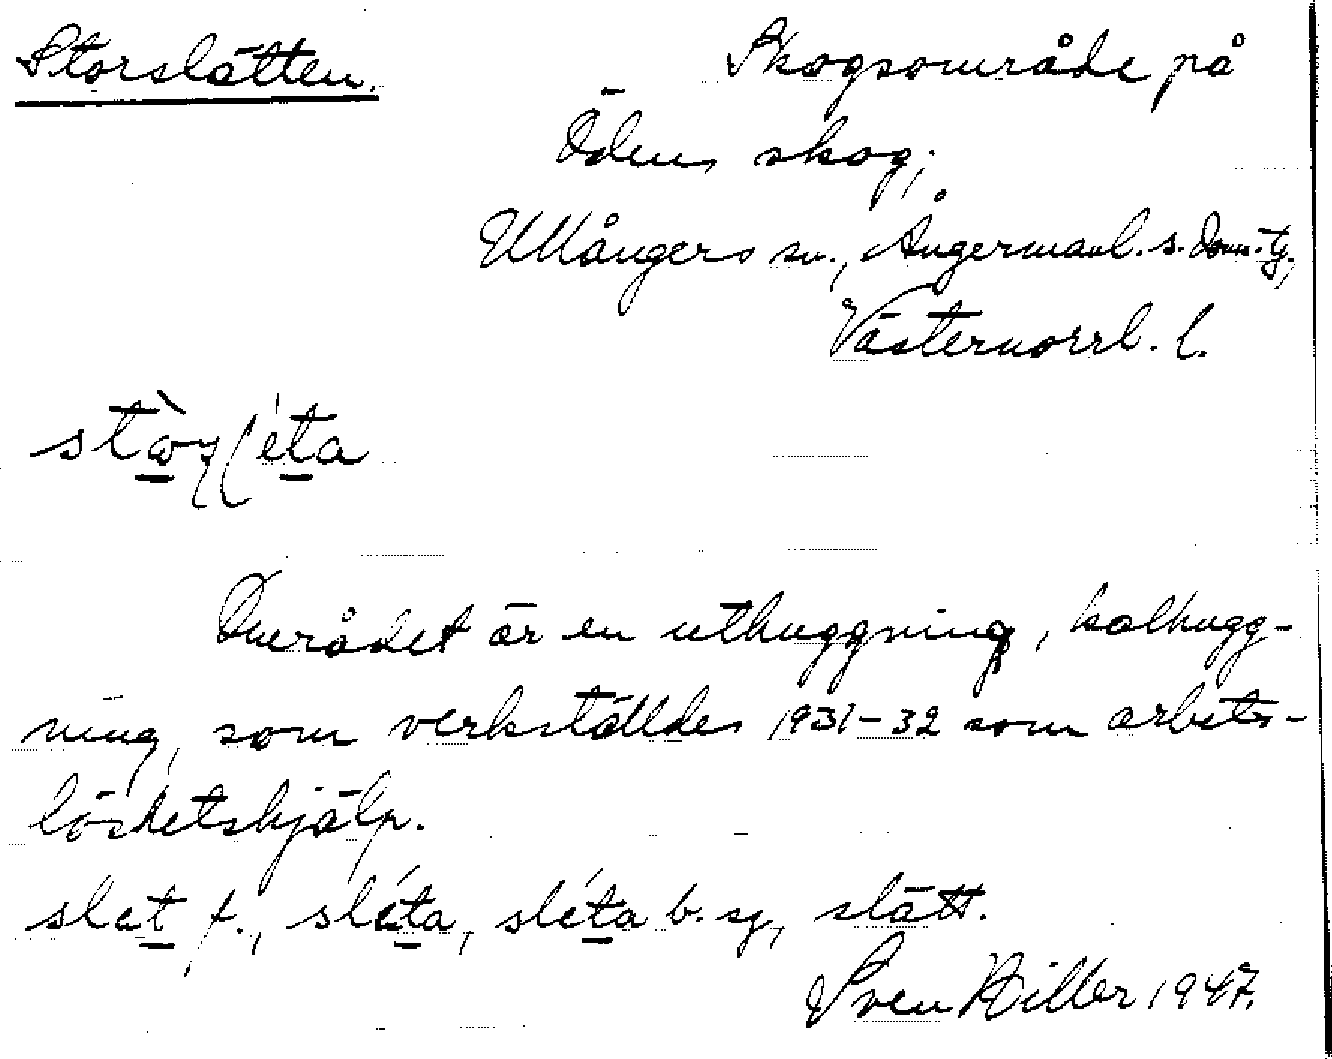 Storslätten.
Skogsområde på
Ödens skog;
Ullångers sn., Ångermanl. s. doms. tg,
Västernorrl. l.
Området är en uthuggning, kalhugg-
ning, som verkställdes 1931-32 som arbets-
löshetshjälp.
slet f., sléta, sléta b. sg, slätt.
Sven Hiller 1947.